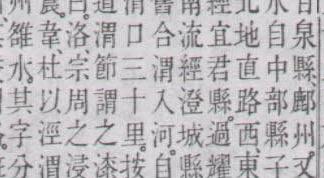 泉縣鄜州
水自中部縣子
北地直路西、東
經宜君縣。過耀
南流經澄城縣
合渭入河。自
渭口三十里。按
道渭節謂之漆
洛、宗周之浸
韋、杜以涇渭
州雒水。其字分